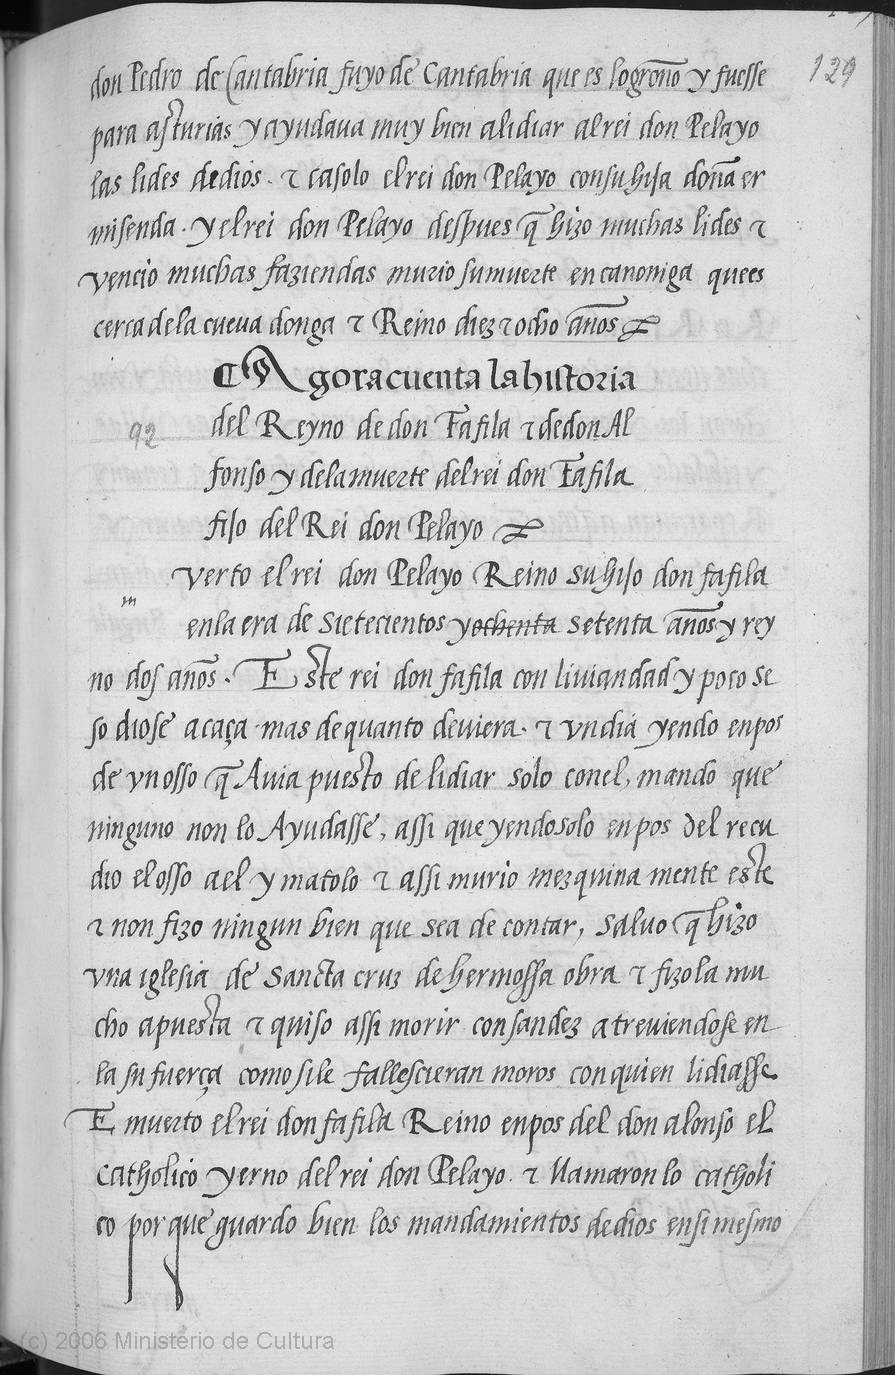 129
don Pedro de Cantabria fuyo de Cantabria que es logroño y fuesse
para asturias y ayudaua muy bien a lidiar al rei don Pelayo
las lides de dios. τ casolo el rei don Pelayo con su hija doña er
misenda. y el rei don Pelayo despues q̃ hizo muchas lides τ
vencio muchas faziendas murio su muerte en canoniga que es
cerca de la cueua donga τ Reino diez τ ocho años
Agora cuenta la historia
92
del Reyno de don Fafila τ de don Al
fonso y de la muerte del rei don Fafila
fijo del Rei don Pelayo
m
verto el rei don Pelayo Reino su hijo don fafila
en la era de sietecientos y ochenta setenta años y rey
no dos años. Este rei don fafila con liviandad y poco se
so diose a caça mas de quanto deuiera. τ vn dia yendo en pos
de vn osso q̃ Auia puesto de lidiar solo con el, mando que
ninguno non lo Ayudasse, assi que yendo solo en pos del recu
dio el osso a el y matolo τ assi murio mezquina mente este
τ non fizo ningun bien que sea de contar, salvo q̃ hizo
vna iglesia de sancta cruz de hermossa obra τ fizola mu
cho apuesta τ quiso assi morir con sandez atreuiendose en
la su fuerça como si le fallescieran moros con quien lidiasse
E muerto el rei don fafila Reino en pos del don alonso el
catholico yerno del rei don Pelayo. τ llamaron lo catholi
co por que guardo bien los mandamientos de dios en si mesmo
(c) 2006 Ministerio de Cultura